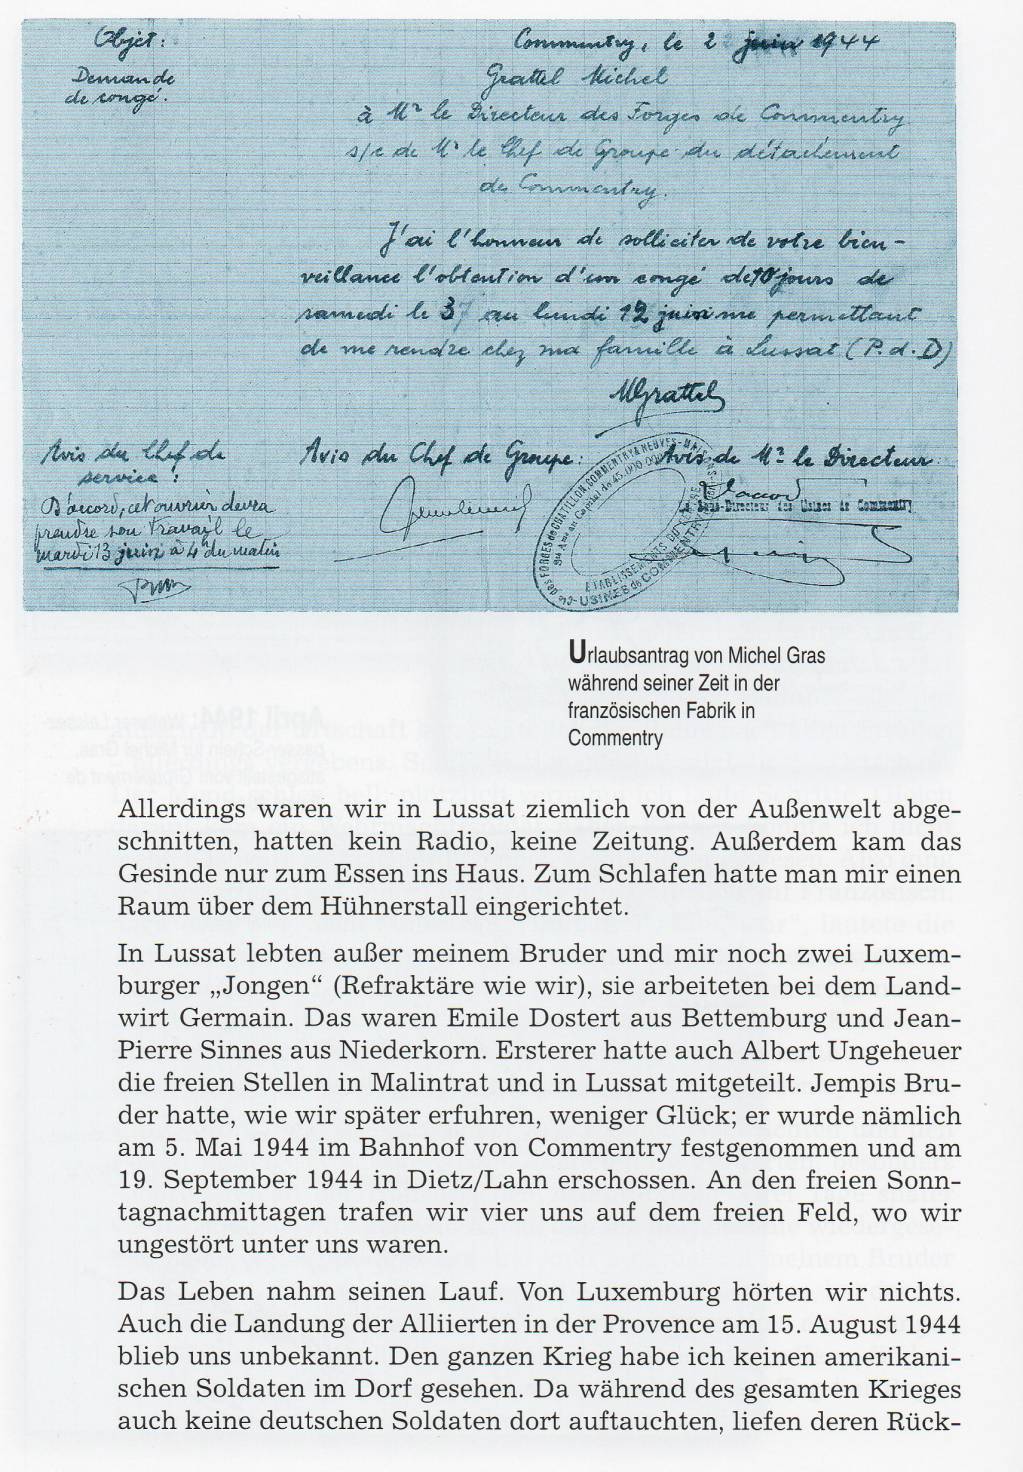 Objet:
Demande
de congé.
Commentry, le 2 juin 1944
Grattel Michel
à Mr le Directeur des Forges de Commentry
s/c de Mr le Chef de Groupe du détachement
de Commentry.
J'ai l'honneur de solliciter de votre bien-
veillance l'obtention d'un congé de 10 jours de
samedi le 3 au lundi 12 juin me permettant
de me rendre chez ma famille à Lussat (P.d.D)
MGrattel
Avis du Chef de
service:
D'accord, cet ouvrier devra
prendre son travail le
mardi 13 juin à 4h du matin
Avis du Chef de Groupe:
Avis de Mr le Directeur
D'accord
Le Sous-Directeur des Usines de Commentry
Cie des FORGES de CHATILLON, COMMENTRY & NEUVES-MAISONS
Sté Ame au Capital de 45.000.000
ETABLISSEMENTS DU CENTRE
USINES de COMMENTRY
Urlaubsantrag von Michel Gras
während seiner Zeit in der
französischen Fabrik in
Commentry
Allerdings waren wir in Lussat ziemlich von der Außenwelt abge-
schnitten, hatten kein Radio, keine Zeitung. Außerdem kam das
Gesinde nur zum Essen ins Haus. Zum Schlafen hatte man mir einen
Raum über dem Hühnerstall eingerichtet.
In Lussat lebten außer meinem Bruder und mir noch zwei Luxem-
burger „Jongen“ (Refraktäre wie wir), sie arbeiteten bei dem Land-
wirt Germain. Das waren Emile Dostert aus Bettemburg und Jean-
Pierre Sinnes aus Niederkorn. Ersterer hatte auch Albert Ungeheuer
die freien Stellen in Malintrat und in Lussat mitgeteilt. Jempis Bru-
der hatte, wie wir später erfuhren, weniger Glück; er wurde nämlich
am 5. Mai 1944 im Bahnhof von Commentry festgenommen und am
19. September 1944 in Dietz/Lahn erschossen. An den freien Sonn-
tagnachmittagen trafen wir vier uns auf dem freien Feld, wo wir
ungestört unter uns waren.
Das Leben nahm seinen Lauf. Von Luxemburg hörten wir nichts.
Auch die Landung der Alliierten in der Provence am 15. August 1944
blieb uns unbekannt. Den ganzen Krieg habe ich keinen amerikani-
schen Soldaten im Dorf gesehen. Da während des gesamten Krieges
auch keine deutschen Soldaten dort auftauchten, liefen deren Rück-